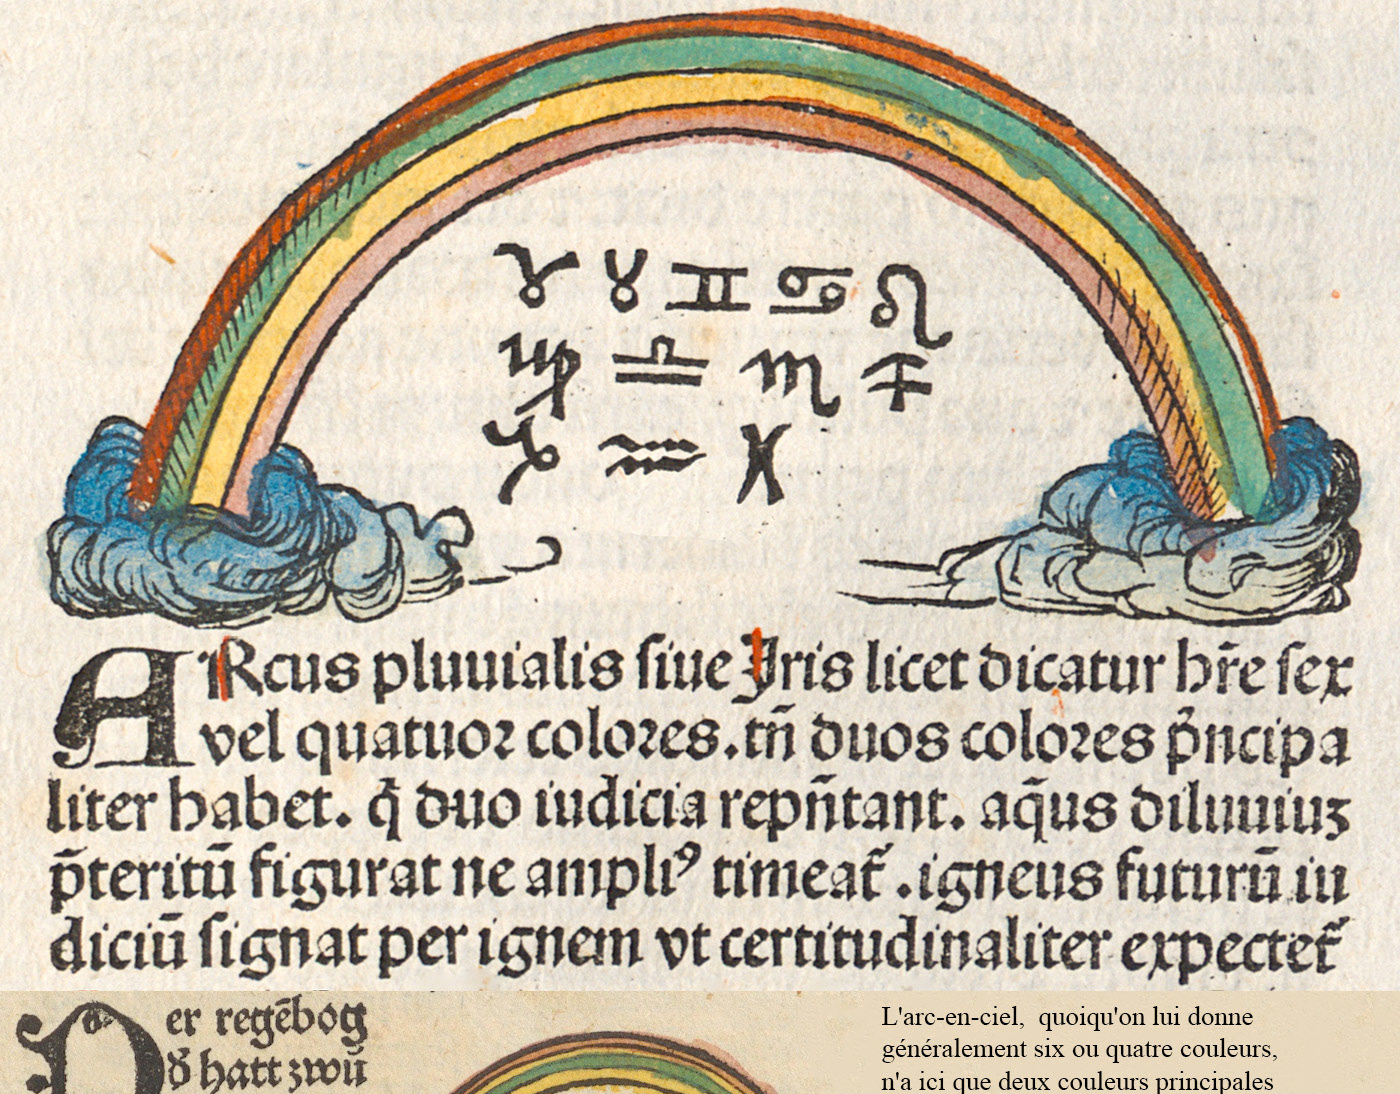 ♈ ♉ ♊ ♋ ♌
♍ ♎ ♏ ♐
♑ ♒ ♓
ARcus pluuialis siue Iris licet dicatur hr̄e sex
vel quatuor colores. tn̄ duos colores p̄ncipa
liter habet. q̄ duo iudicia repn̄tant. aq̄us diluuiuʒ
p̄teritū figurat ne ampliꝰ timeat̄. igneus futurū iu
diciū signat per ignem vt certitudinaliter expectet̄
Der regēbog
d̄ hatt zwū
L'arc-en-ciel, quoiqu'on lui donne
généralement six ou quatre couleurs,
n'a ici que deux couleurs principales